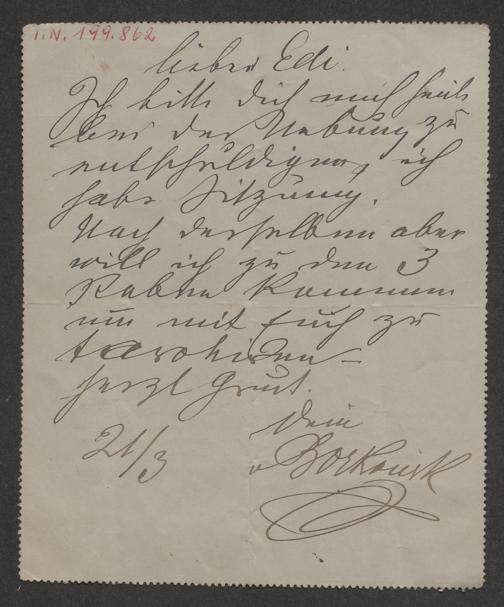 I.N. 199.862
lieber Edi.
Ich bitte Dich mich heute
bei der Uebung zu
entschuldigen, ich
habe Sitzung.
Nach derselben aber
will ich zu den 3
Raben kommen
um mit Euch zu
tarokieren –
herzl Gruß.
Dein
21/3